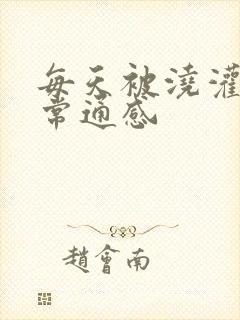 每天被澆灌
常通感
趙會南